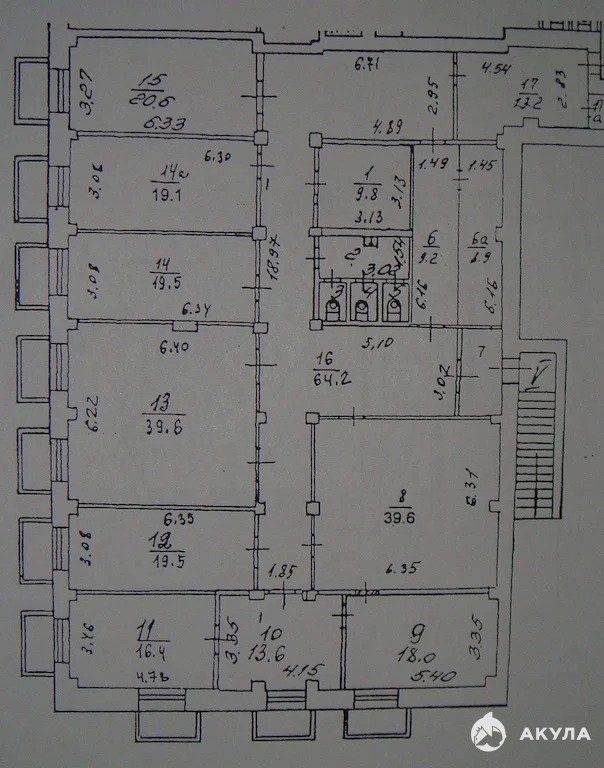 6.71
4.54
17
13.2
2.83
17
а
3.27
15
20.6
6.33
2.95
4.89
6.30
3.06
14а
19.1
1
9.8
3.13
3.13
1.49
1.45
2
1.54
3.08
14
19.5
6.34
18.97
6
9.2
6а
8.9
6.16
5.16
6.40
5,10
16
64.2
3.02
7
6.22
13
39.6
8
39.6
6.31
6.35
6.35
3.08
12
19.5
1.85
3.46
11
16.4
4.78
3.35
10
13.6
4.15
9
18.0
5.40
3.35
АКУЛА